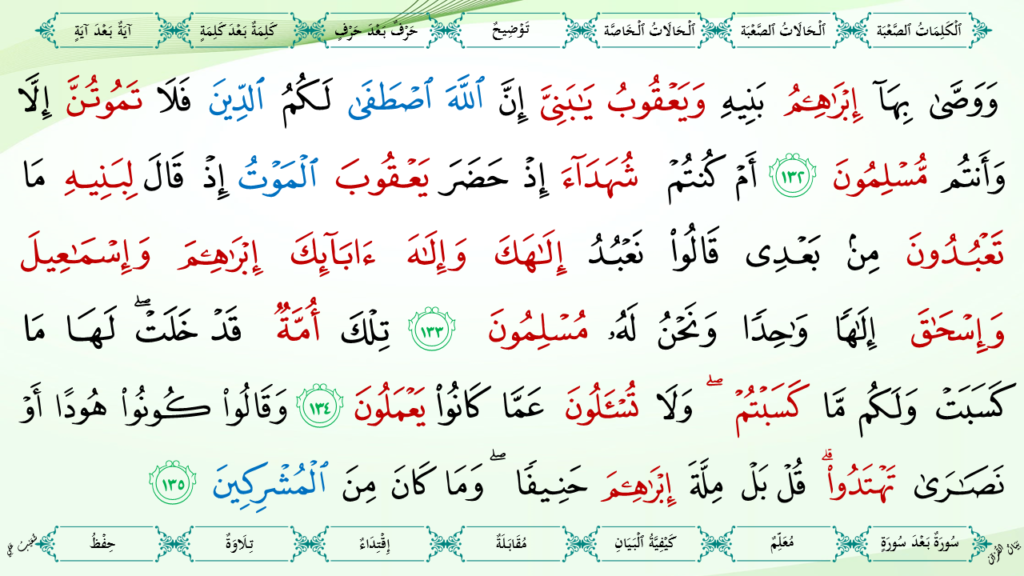 ٱلْكَلِمَاتُ ٱلصَّعْبَة ٱلْحَالَاتُ ٱلصَّعْبَة ٱلْحَالَاتُ ٱلْخَاصَّة تَوْضِيحٌ حَرْفٌ بَعْدَ حَرْفٍ كَلِمَةٌ بَعْدَ كَلِمَةٍ آيَةٌ بَعْدَ آيَةٍ
وَوَصَّىٰ بِهَآ إِبْرَٰهِـۧمُ بَنِيهِ وَيَعْقُوبُ يَـٰبَنِىَّ إِنَّ ٱللَّهَ ٱصْطَفَىٰ لَكُمُ ٱلدِّينَ فَلَا تَمُوتُنَّ إِلَّا
وَأَنتُم مُّسْلِمُونَ ١٣٢ أَمْ كُنتُمْ شُهَدَآءَ إِذْ حَضَرَ يَعْقُوبَ ٱلْمَوْتُ إِذْ قَالَ لِبَنِيهِ مَا
تَعْبُدُونَ مِنۢ بَعْدِى قَالُوا۟ نَعْبُدُ إِلَـٰهَكَ وَإِلَـٰهَ ءَابَآئِكَ إِبْرَٰهِـۧمَ وَإِسْمَـٰعِيلَ
وَإِسْحَـٰقَ إِلَـٰهًا وَٰحِدًا وَنَحْنُ لَهُۥ مُسْلِمُونَ ١٣٣ تِلْكَ أُمَّةٌ قَدْ خَلَتْ ۖ لَهَا مَا
كَسَبَتْ وَلَكُم مَّا كَسَبْتُمْ ۖ وَلَا تُسْـَٔلُونَ عَمَّا كَانُوا۟ يَعْمَلُونَ ١٣٤ وَقَالُوا۟ كُونُوا۟ هُودًا أَوْ
نَصَـٰرَىٰ تَهْتَدُوا۟ ۗ قُلْ بَلْ مِلَّةَ إِبْرَٰهِـۧمَ حَنِيفًا ۖ وَمَا كَانَ مِنَ ٱلْمُشْرِكِينَ ١٣٥
سُورَةٌ بَعْدَ سُورَةٍ مُعَلِّمٌ كَيْفِيَّةُ ٱلْبَيَانِ مُقَابَلَةٌ إِقْتِدَاءٌ تِلَاوَةٌ حِفْظُ